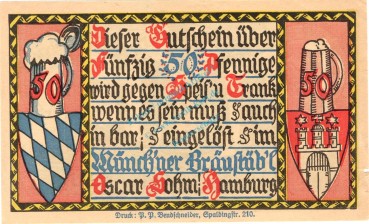 Dieser Gutschein über
Fünfzig 50 Pfennige
wird gegen Speis u Trank
wenn es sein muß auch
in bar, eingelöst im
Münchner Bräustüb'l
Oscar Hohm, Hamburg
50
50
Druck: P. P. Bendschneider, Spaldingstr. 210.